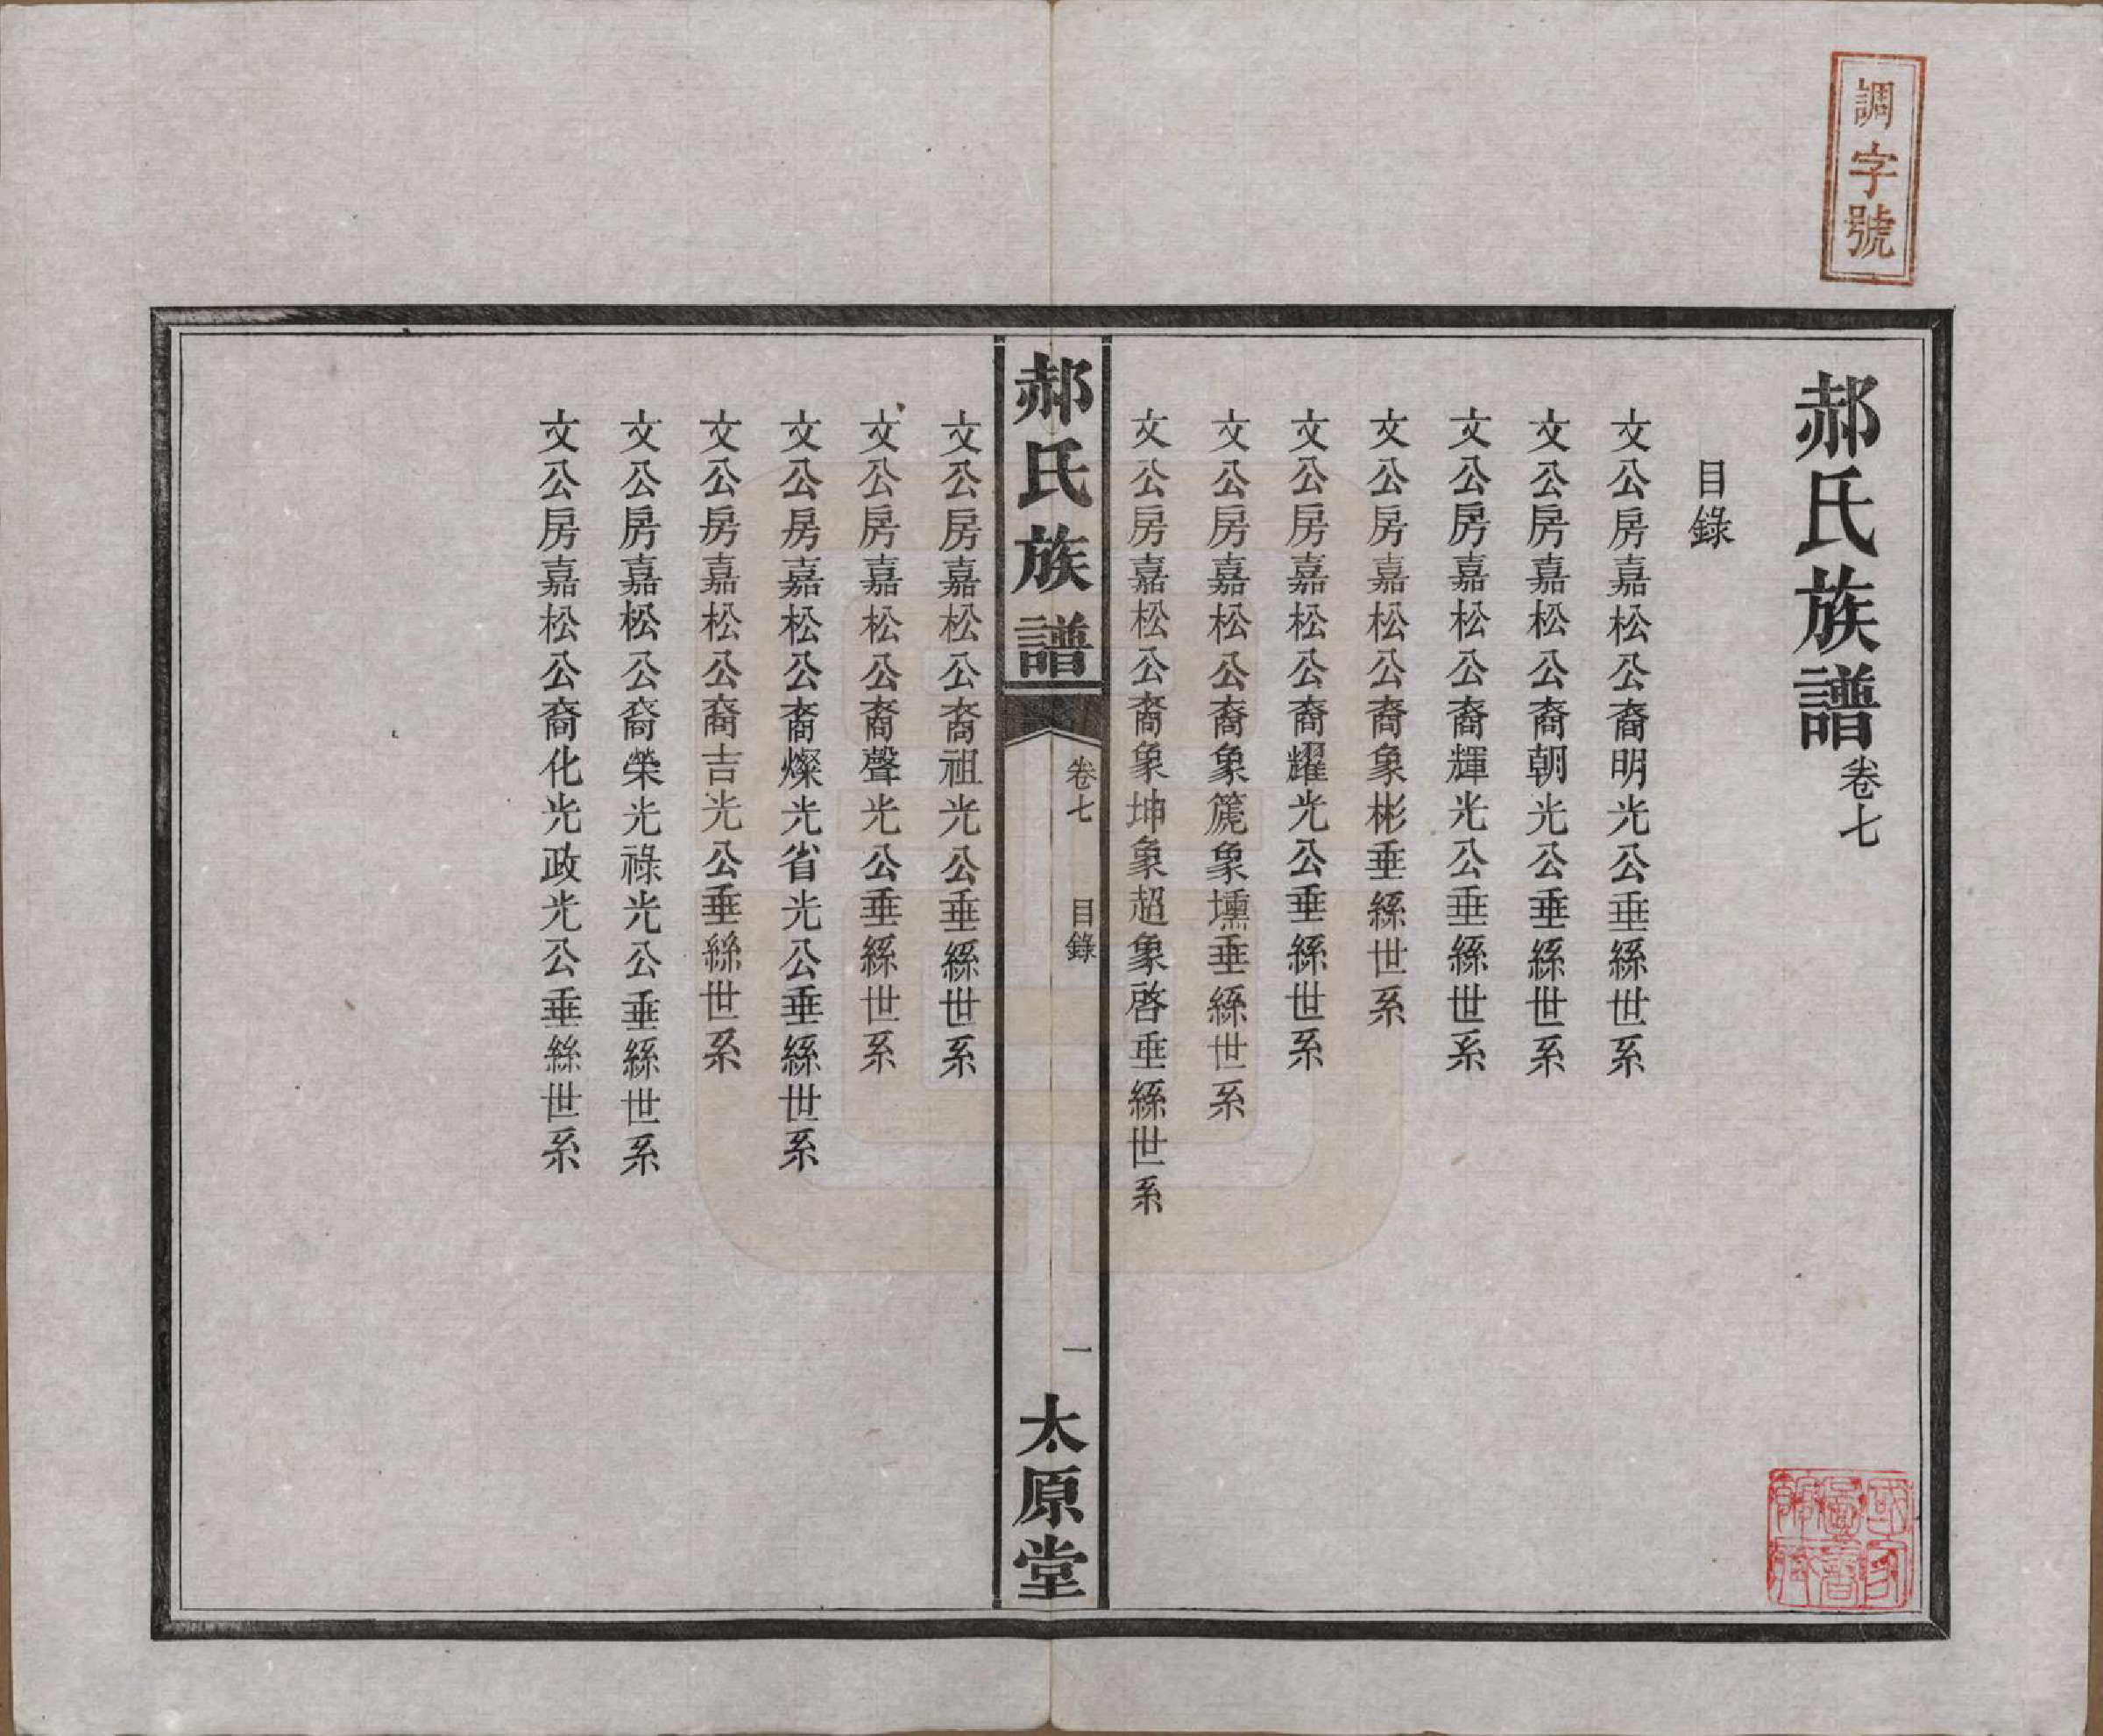 調字號
郝氏族譜卷七
目錄
文公房嘉松公裔明光公垂絲世系
文公房嘉松公裔朝光公垂絲世系
文公房嘉松公裔輝光公垂絲世系
文公房嘉松公裔象彬垂絲世系
文公房嘉松公裔耀光公垂絲世系
文公房嘉松公裔象篪象壎垂絲世系
文公房嘉松公裔象坤象超象啓垂絲世系
郝氏族譜
卷七 目錄
一
太原堂
文公房嘉松公裔祖光公垂絲世系
文公房嘉松公裔聲光公垂絲世系
文公房嘉松公裔燦光省光公垂絲世系
文公房嘉松公裔吉光公垂絲世系
文公房嘉松公裔榮光祿光公垂絲世系
文公房嘉松公裔化光政光公垂絲世系
國家圖書館藏